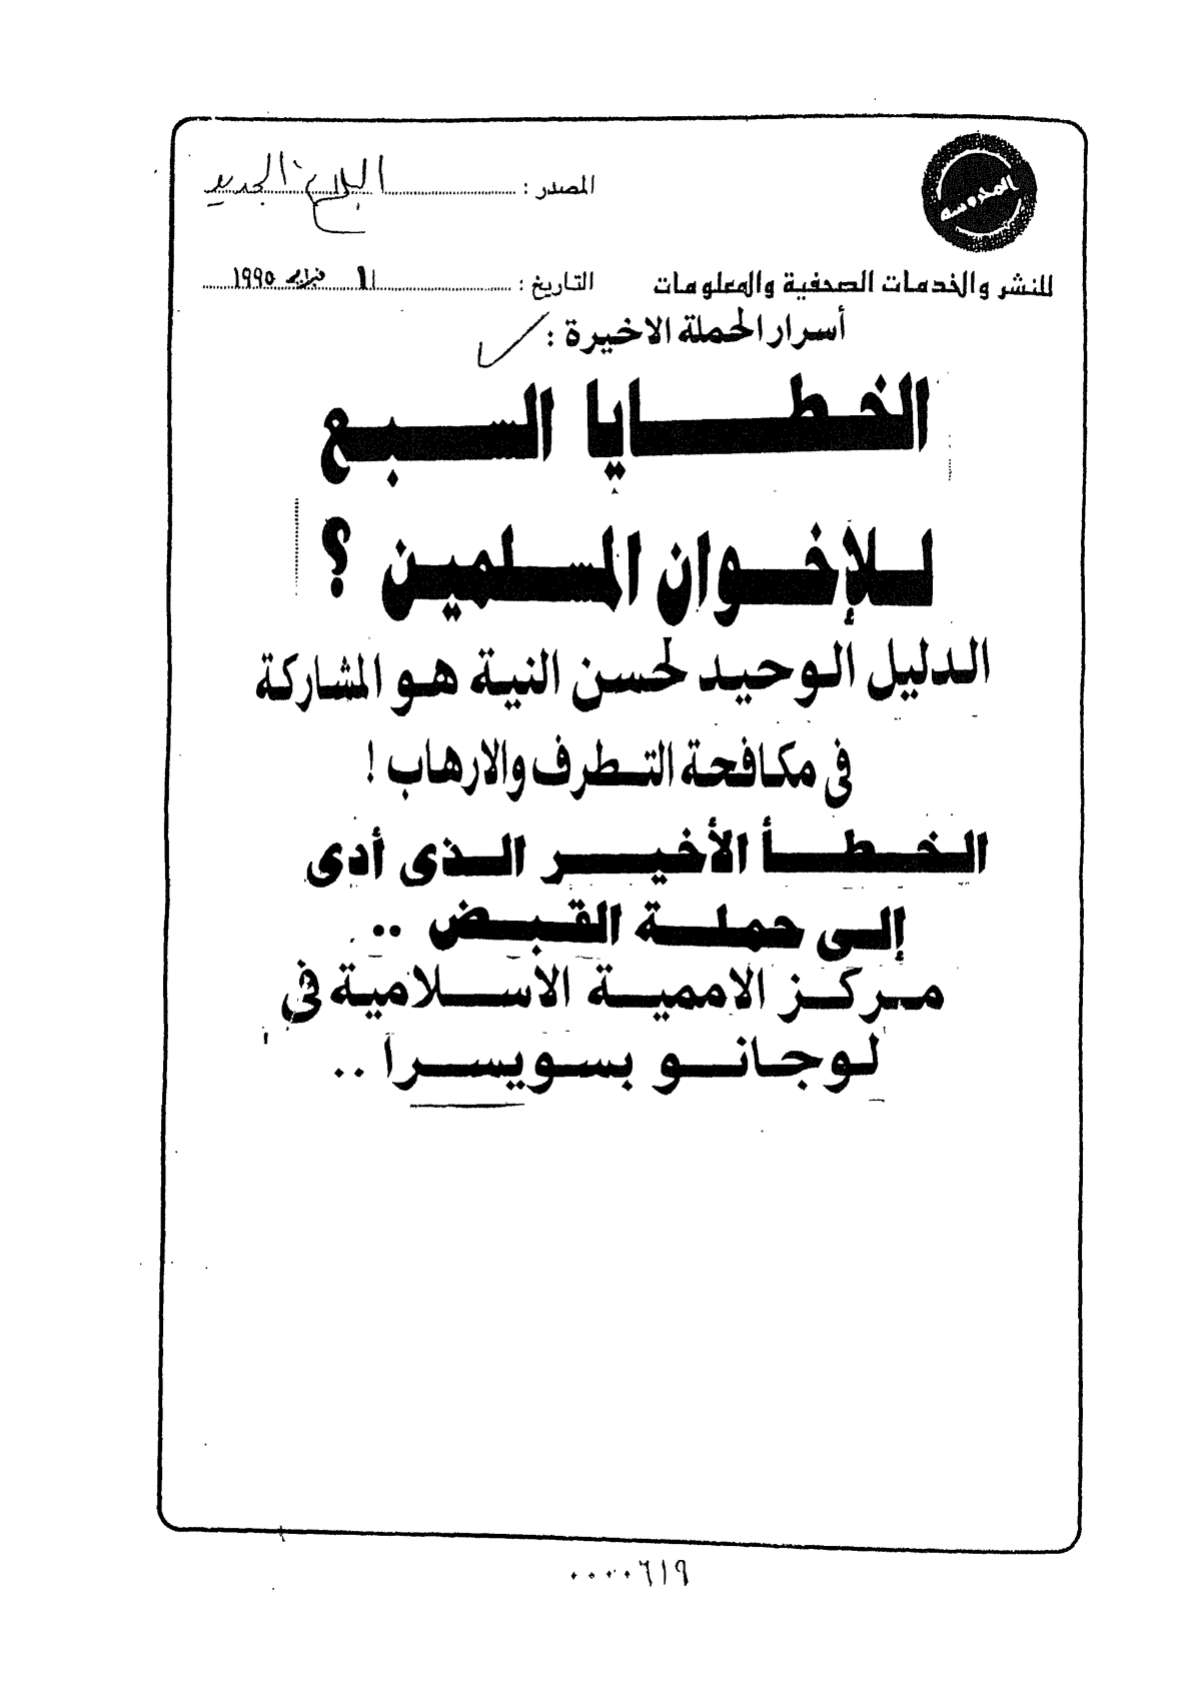 المحروسة
المصدر : البلاغ الجديد
للنشر والخدمات الصحفية والمعلومات
التاريخ : ١ فبراير ١٩٩٥
أسرار الحملة الاخيرة :
الخطايا السبع
للإخوان المسلمين ؟
الدليل الوحيد لحسن النية هو المشاركة
فى مكافحة التطرف والارهاب !
الخطأ الأخير الذى أدى
إلى حملة القبض ..
مركز الاممية الاسلامية فى
لوجانو بسويسرا ..
٠٠٠٠٦١٩